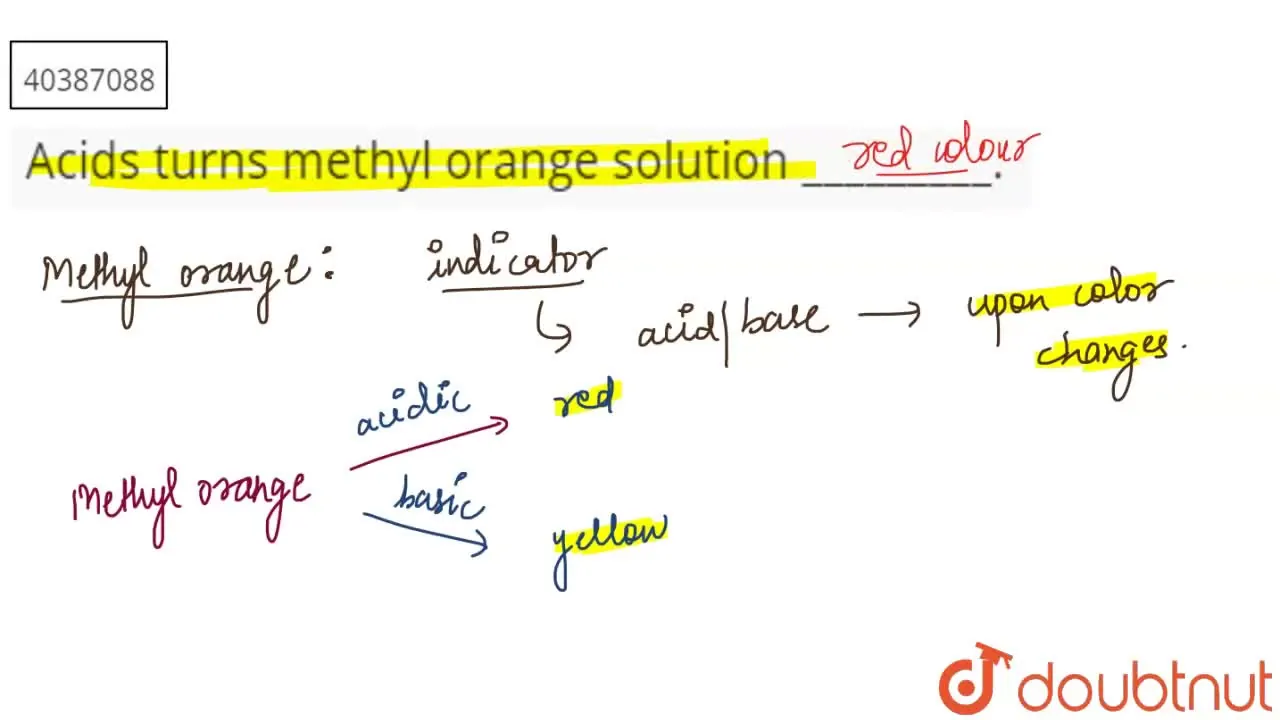 40387088
Acids turns methyl orange solution _________. red colour
Methyl orange: indicator
acid/base → upon color
changes.
acidic red
Methyl orange
basic yellow
doubtnut